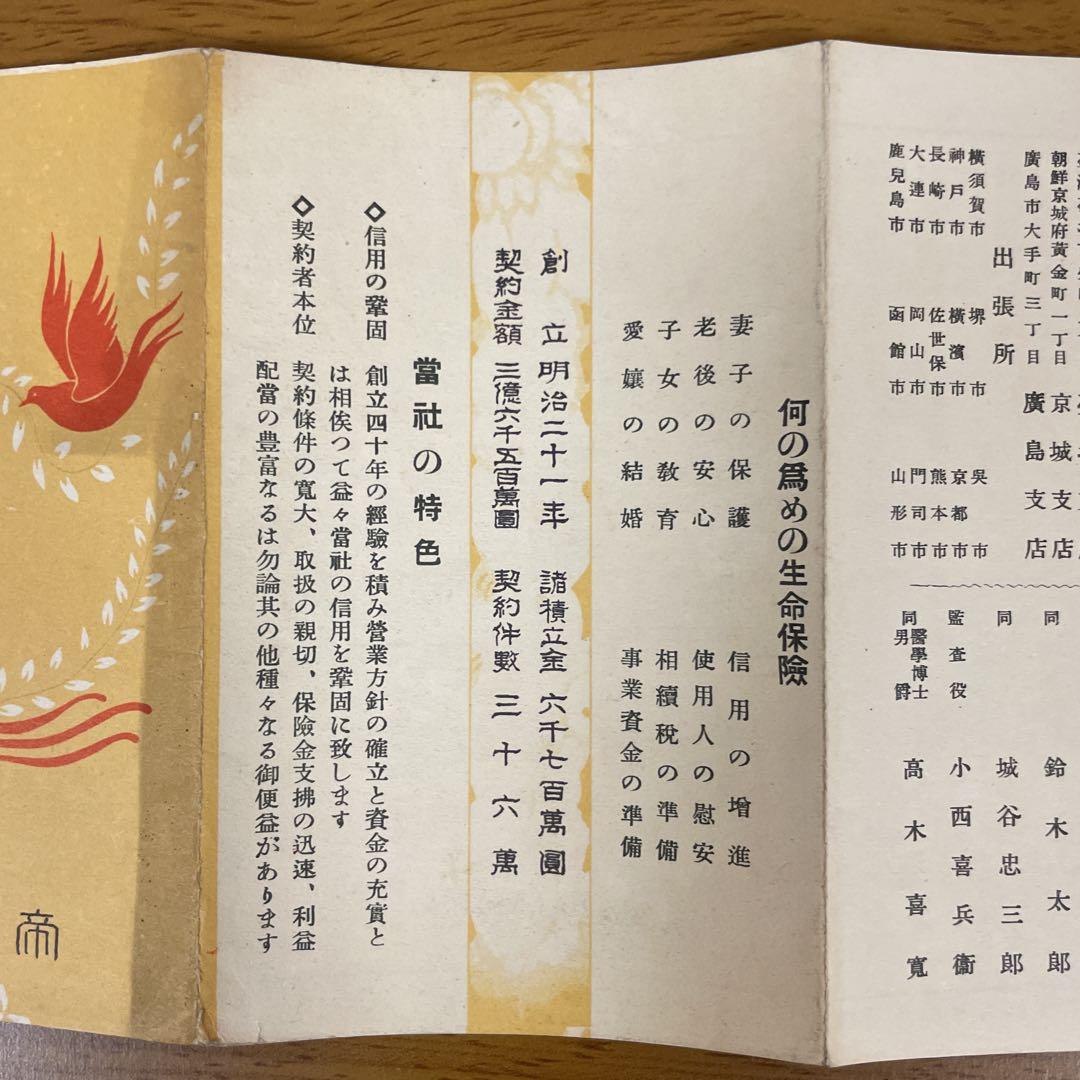 朝鮮京城府黃金町一丁目 京城支店
廣島市大手町三丁目 廣島支店
出張所
橫須賀市 堺市 吳市
神戶市 橫濱市 京都市
長崎市 佐世保市 熊本市
大連市 岡山市 門司市
鹿兒島市 函館市 山形市
同 鈴木太郎
同 城谷忠三郎
監査役 小西喜兵衞
同 醫學博士 男爵 高木喜寬
何の爲めの生命保險
妻子の保護 信用の增進
老後の安心 使用人の慰安
子女の敎育 相續稅の準備
愛孃の結婚 事業資金の準備
創立 明治二十一年 諸積立金 六千七百萬圓
契約金額 三億六千五百萬圓 契約件數 三十六萬
當社の特色
◇信用の鞏固 創立四十年の經驗を積み營業方針の確立と資金の充實と
は相俟つて益々當社の信用を鞏固に致します
◇契約者本位 契約條件の寬大、取扱の親切、保險金支拂の迅速、利益
配當の豊富なるは勿論其の他種々なる御便益があります
帝